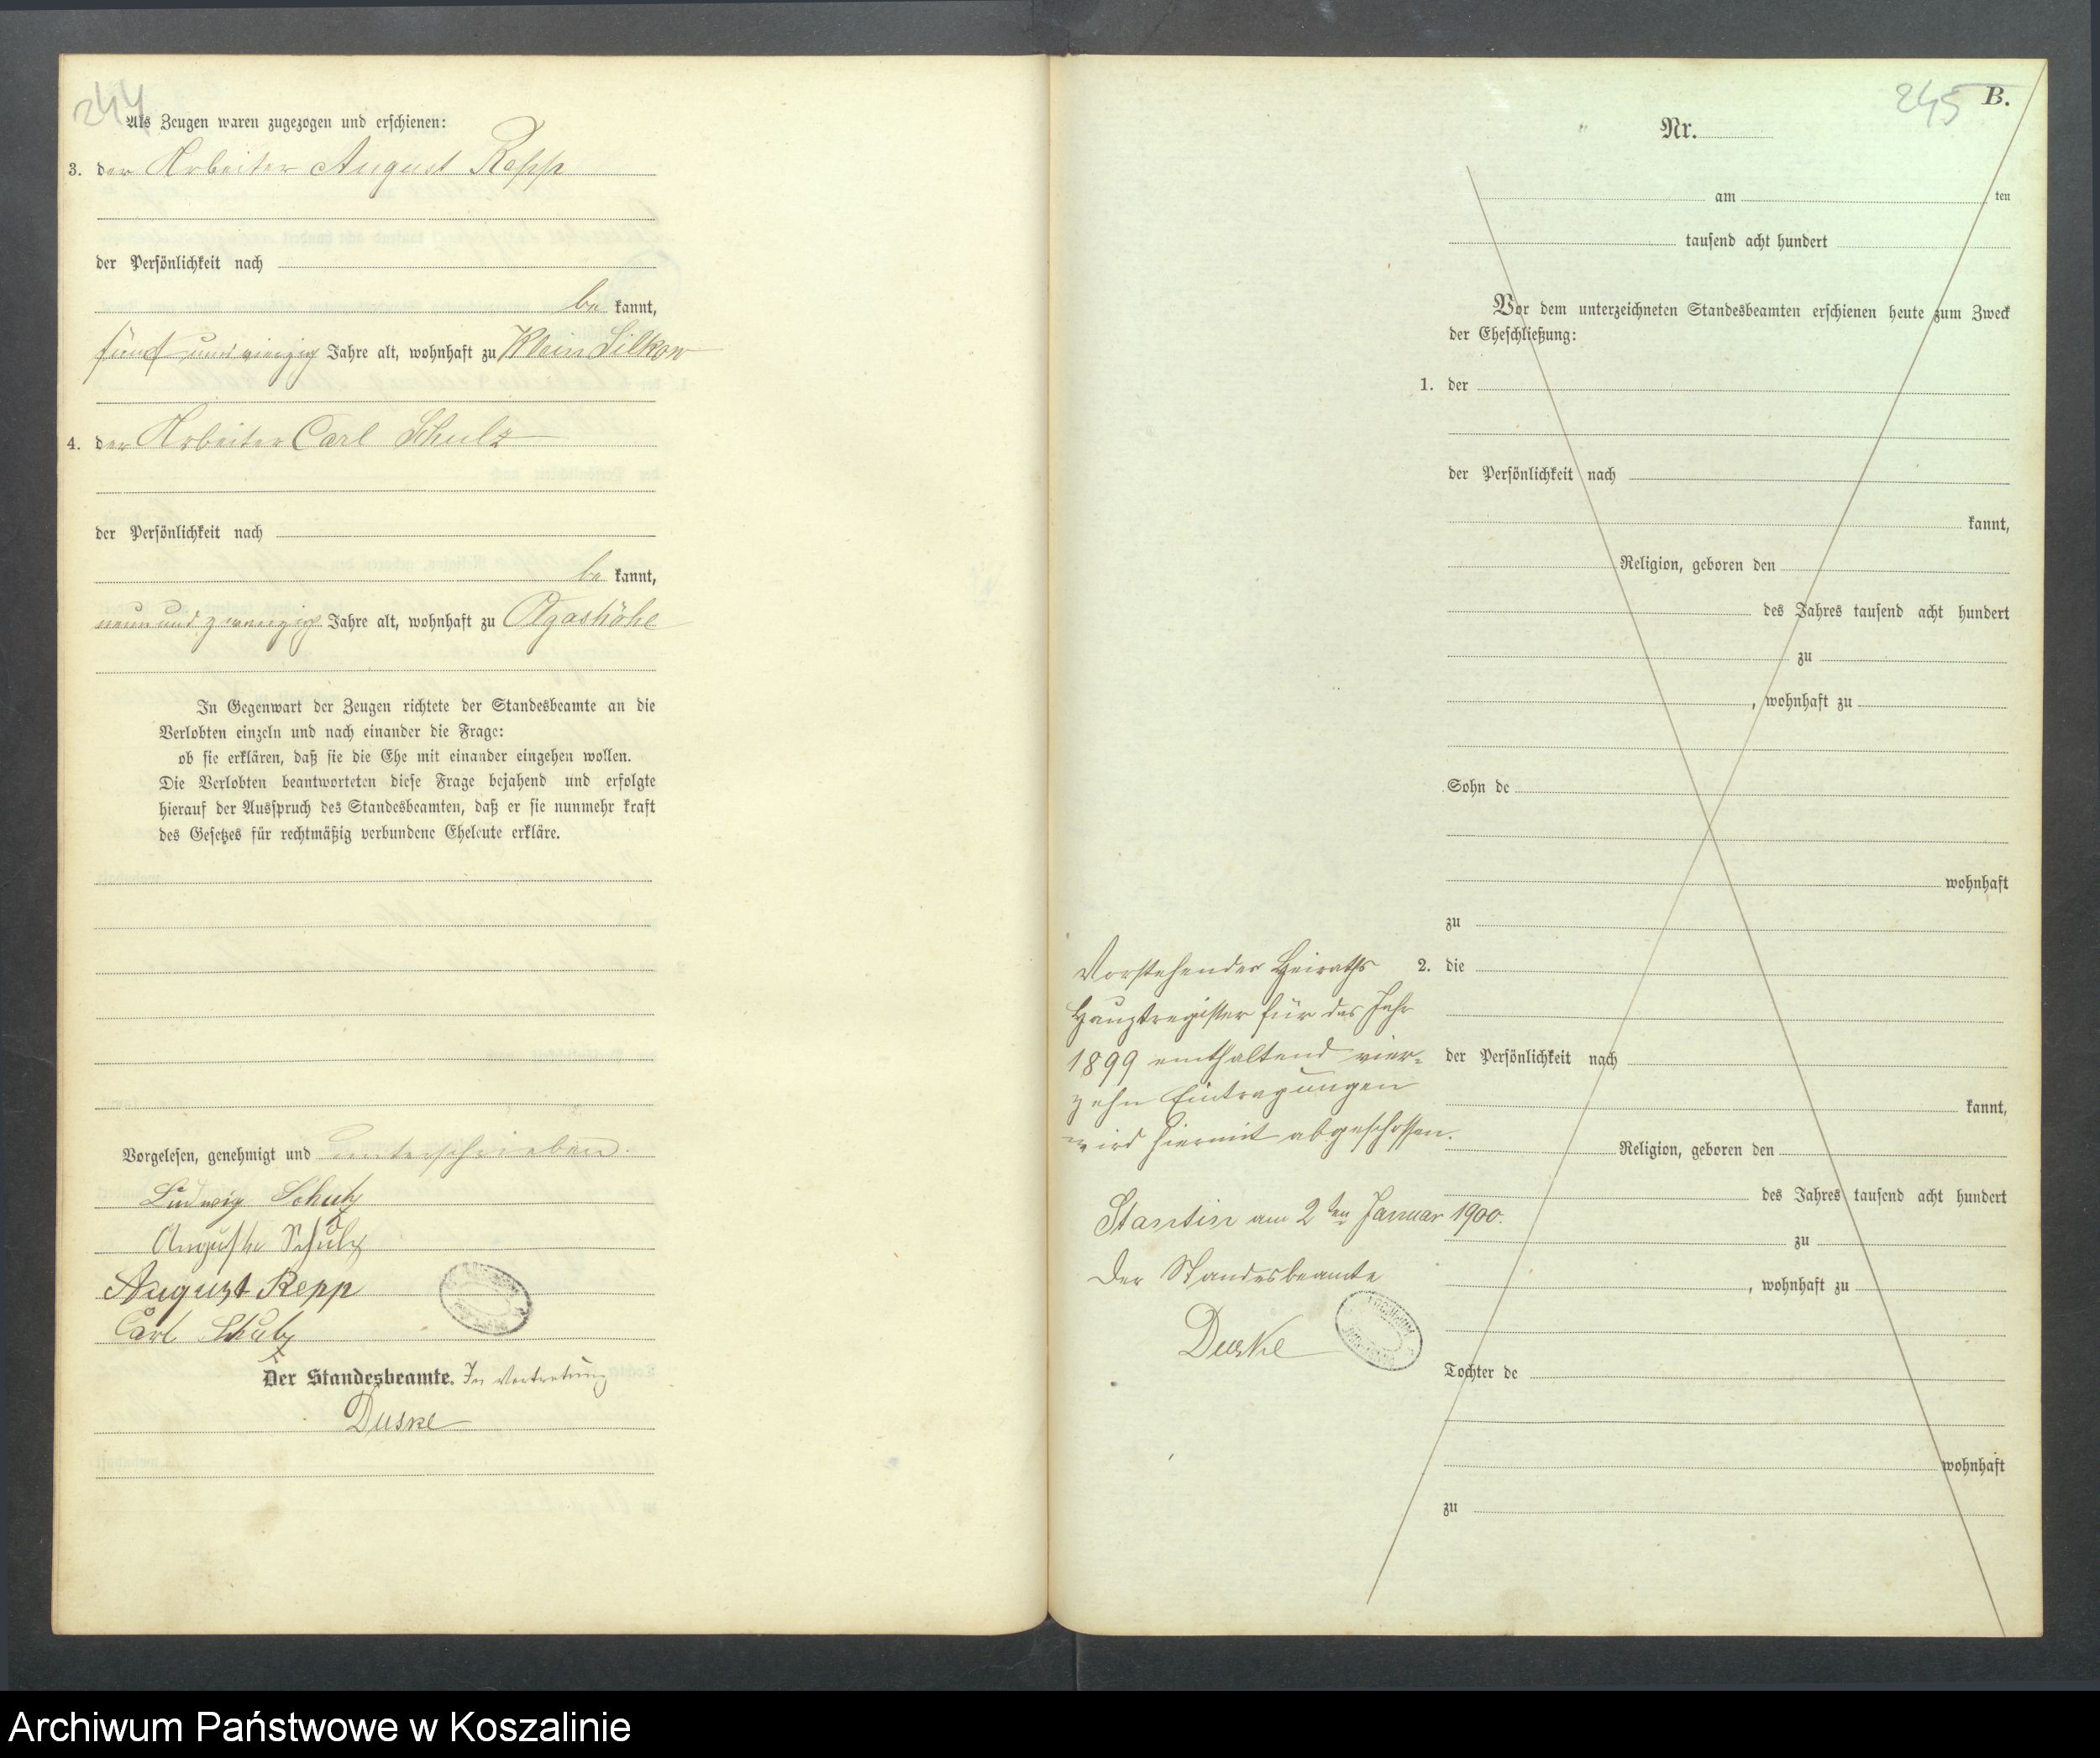 244
Als Zeugen waren zugezogen und erschienen:
3. der Arbeiter August Repp
der Persönlichkeit nach
be kannt,
fünf und vierzig Jahre alt, wohnhaft zu Klein Silkow
4. der Arbeiter Carl Schulz
der Persönlichkeit nach
be kannt,
neun und zwanzig Jahre alt, wohnhaft zu Olgashöhe
In Gegenwart der Zeugen richtete der Standesbeamte an die
Verlobten einzeln und nach einander die Frage:
ob sie erklären, daß sie die Ehe mit einander eingehen wollen.
Die Verlobten beantworteten diese Frage bejahend und erfolgte
hierauf der Ausspruch des Standesbeamten, daß er sie nunmehr kraft
des Gesetzes für rechtmäßig verbundene Eheleute erkläre.
Vorgelesen, genehmigt und unterschrieben.
Ludwig Schulz
Auguste Schulz
August Repp
Carl Schulz
Der Standesbeamte. In Vertretung
Duske
245 B.
Nr.
am ten
tausend acht hundert
Vor dem unterzeichneten Standesbeamten erschienen heute zum Zweck
der Eheschließung:
1. der
der Persönlichkeit nach
kannt,
Religion, geboren den
des Jahres tausend acht hundert
zu
, wohnhaft zu
Sohn de
wohnhaft
zu
2. die
der Persönlichkeit nach
kannt,
Religion, geboren den
des Jahres tausend acht hundert
zu
, wohnhaft zu
Tochter de
wohnhaft
zu
Vorstehendes Heiraths
Hauptregister für das Jahr
1899 enthaltend vier-
zehn Eintragungen
wird hiermit abgeschlossen.
Stantin am 2ten Januar 1900.
Der Standesbeamte
Duske
Archiwum Państwowe w Koszalinie